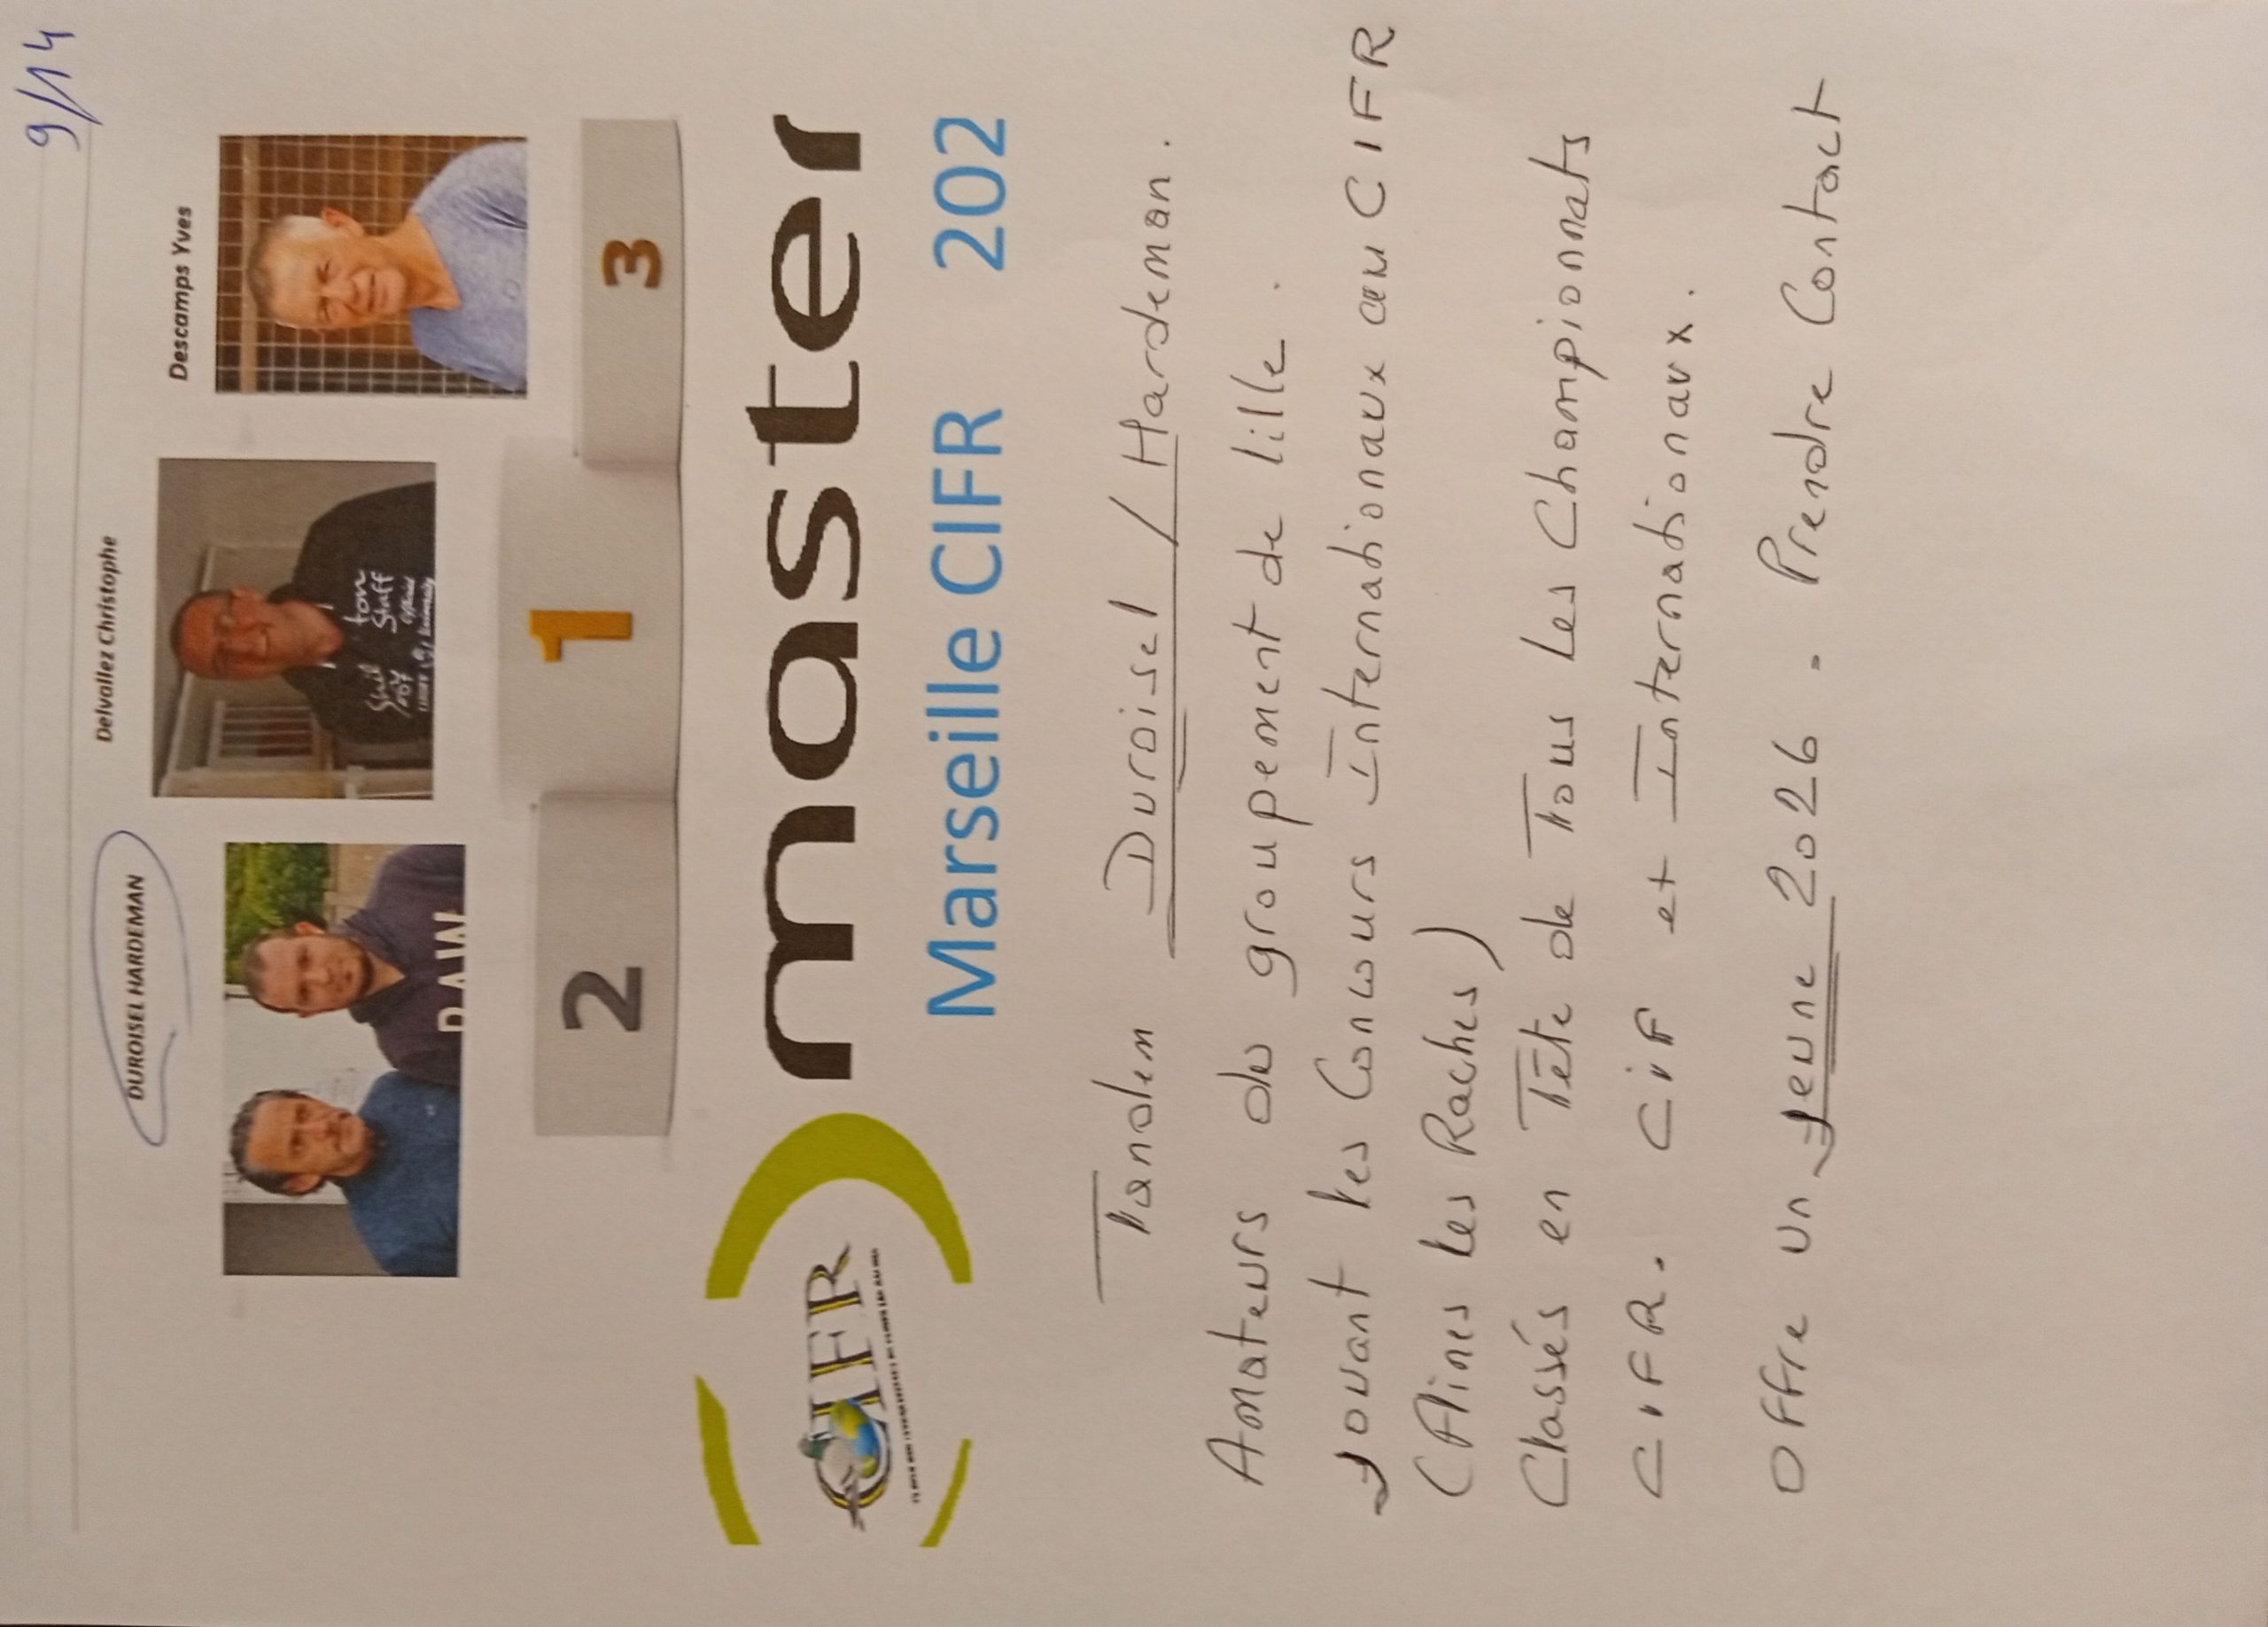 9/14
Descamps Yves
Delvallez Christophe
DUROISEL HARDEMAN
ton
Staff
1
2
3
CIFR
master
Marseille CIFR 202
Tandem Duroisel / Hardeman.
Amateurs du groupement de lille.
Jouant les Concours Internationaux au CIFR
(Aines les Raches)
Classés en Tête de Tous les Championnats
CIFR. CIF et Internationaux.
Offre un Jeune 2026. Prendre Contact